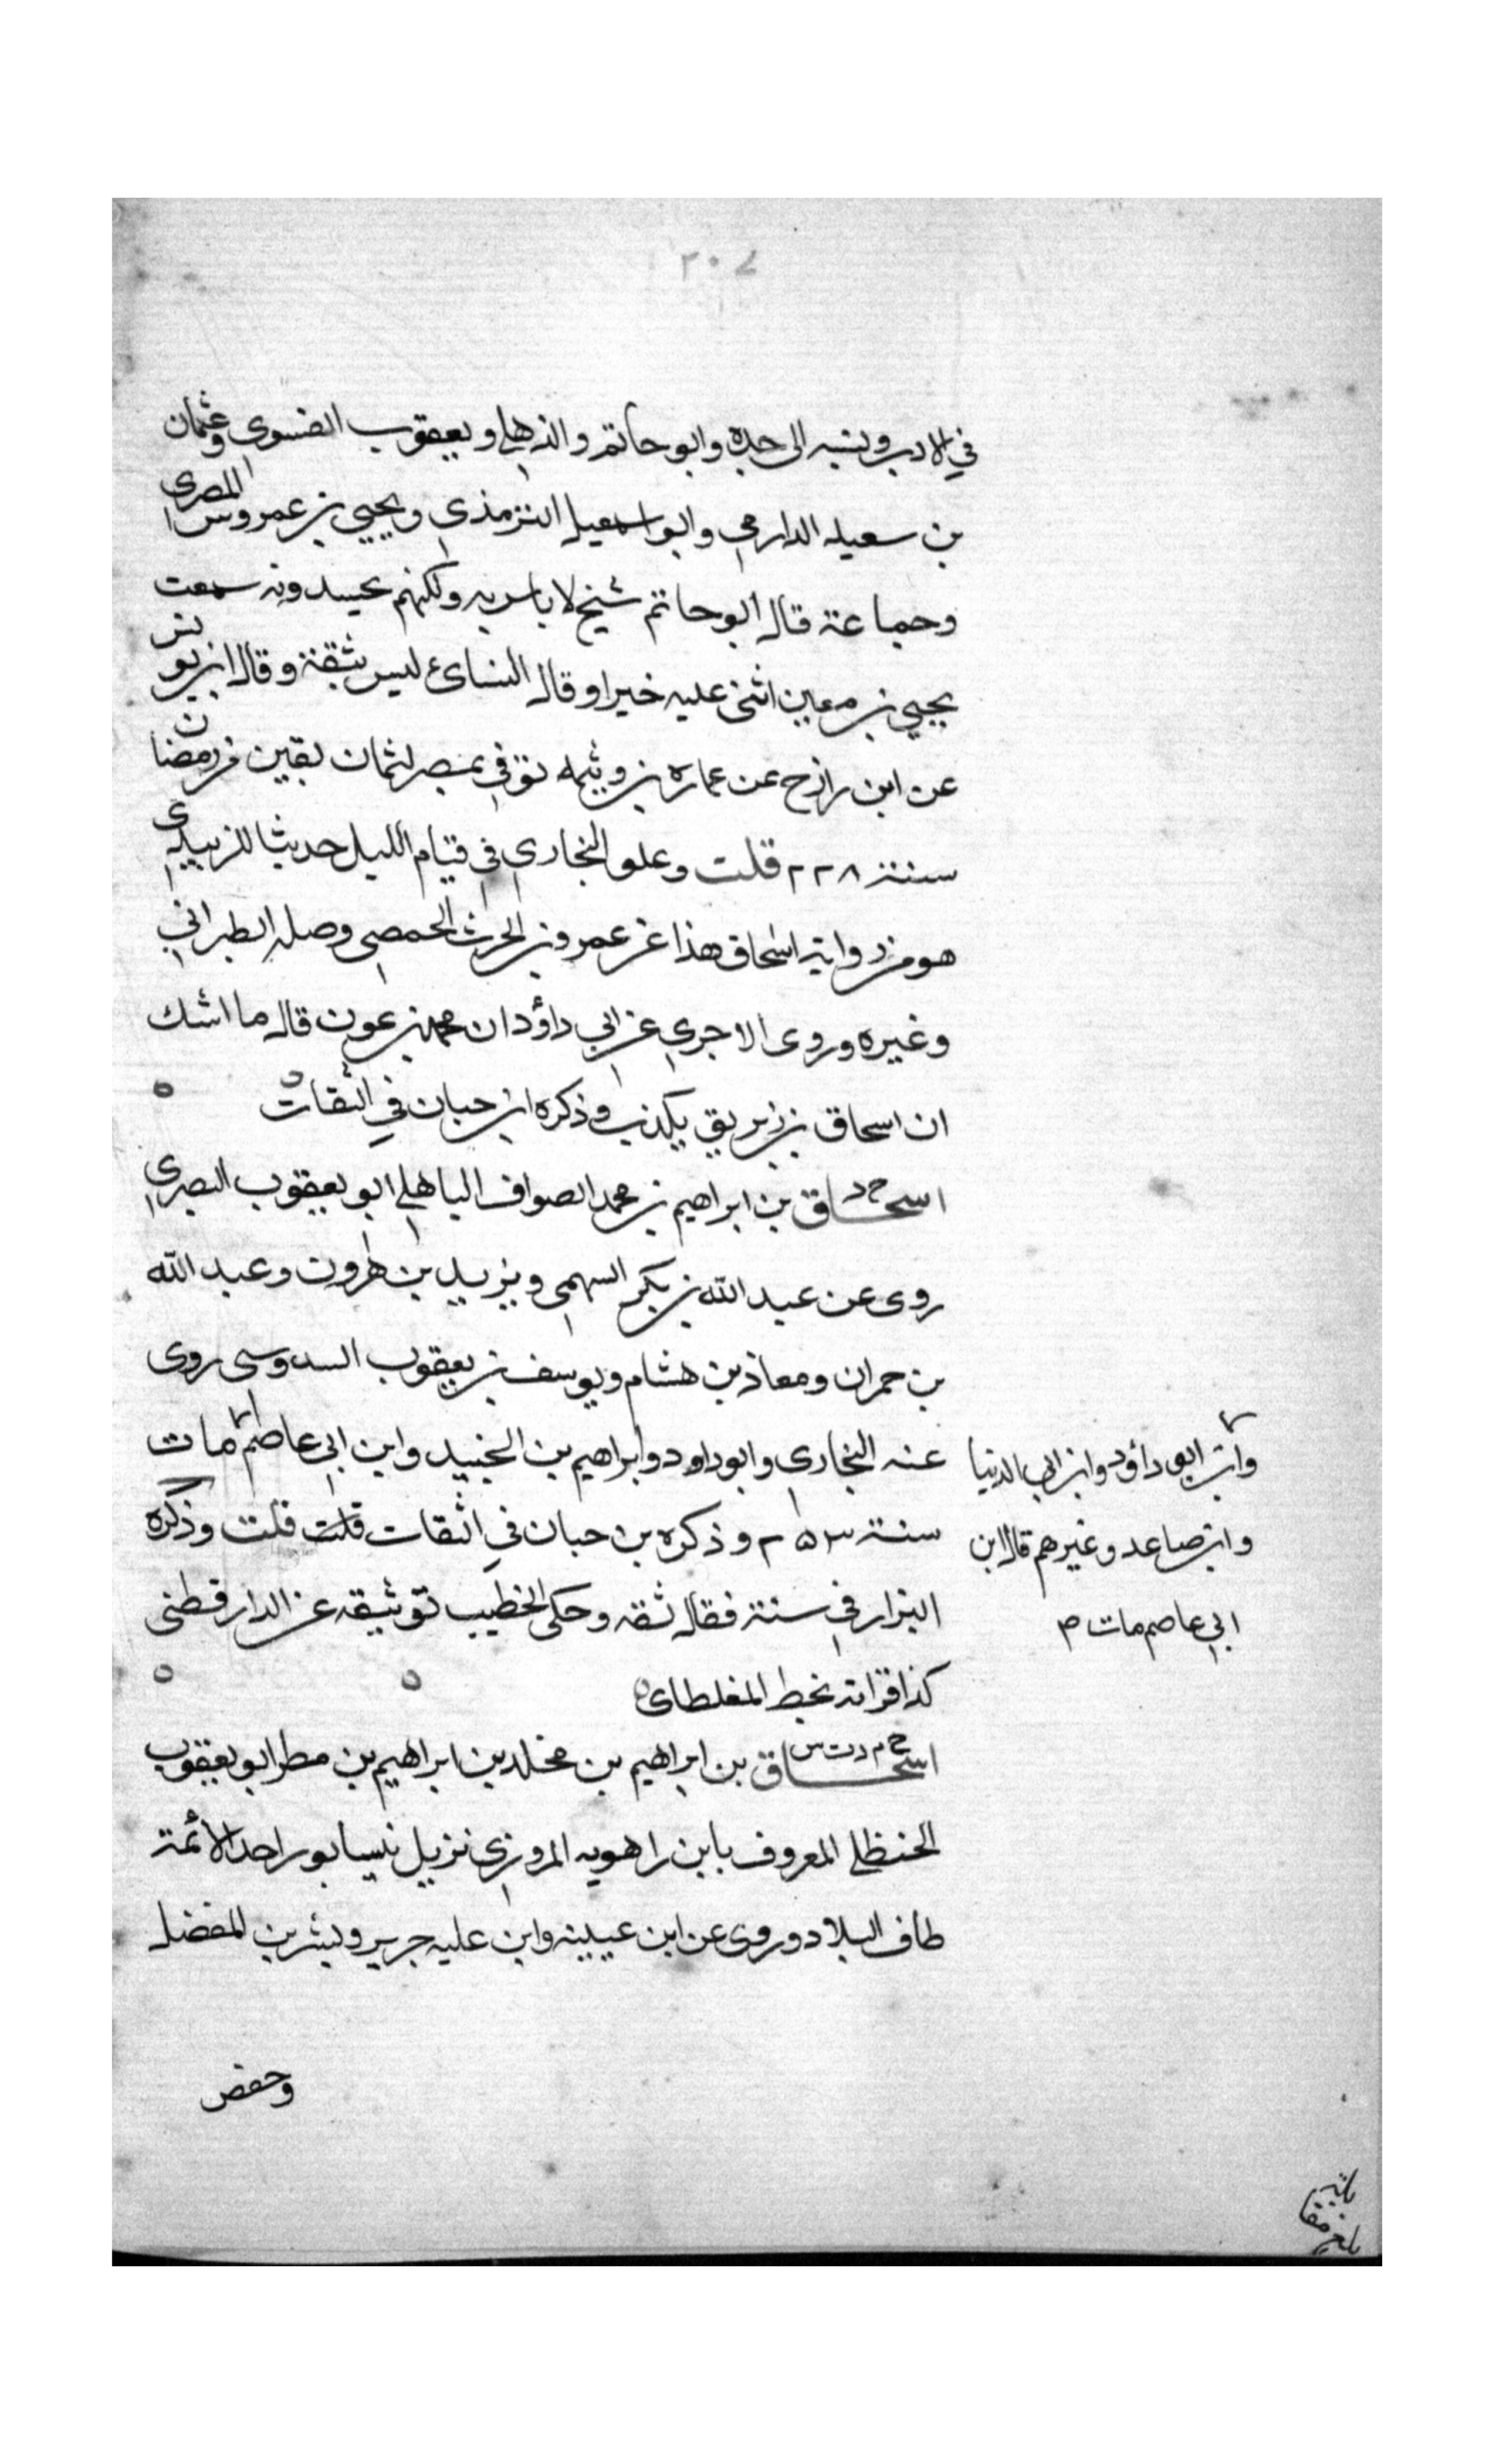 ٢٠٧
في الادب ونسبه الى جده وابو حاتم والذهلي ويعقوب الفسوي وعثمان
بن سعيد الدارمي وابو اسمعيل الترمذي ويحيي بن عمروس المصري
وجماعة قال ابو حاتم شيخ لا باس به ولكنهم يحسدونه سمعت
يحيي بن معين اثنى عليه خيرا وقال النسائ ليس بثقة وقال ابن يونس
عن ابن رازح عن عماره بن وثيمه توفي بمصر لثمان بقين من رمضان
سنة ٢٢٨ قلت وعلق البخاري في قيام الليل حديثا للزبيدي
هو من رواية اسحاق هذا عن عمرو بن الحرث الحمصي وصله الطبراني
وغيره وروى الاجري عن ابي داؤد ان محمد بن عون قال ما اشك
ان اسحاق بن زبريق يكذب وذكره ابن حبان في الثقات ه
خ د
اسحاق بن ابراهيم بن محمد الصواف الباهلي ابو يعقوب البصري
روى عن عبد الله بن بكر السهمي ويزيد بن هرون وعبد الله
بن حمران ومعاذ بن هشام ويوسف بن يعقوب السدوسي روى
عنه البخاري وابو داود وابراهيم بن الجنيد وابن ابي عاصم مات
وابن ابي داؤد وابن ابي الدنيا
وابن صاعد وغيرهم قال ابن
ابي عاصم مات م
سنة ٢٥٣ وذكره بن حبان في الثقات قلت قلت وذكره
البزار في سننه فقال ثقه وحكى الخطيب توثيقه عن الدارقطني
كذا قراته بخط المغلطاي ه ه
خ م د ت س
اسحاق بن ابراهيم بن مخلد بن ابراهيم بن مطر ابو يعقوب
الحنظلي المعروف بابن راهويه المروزي نزيل نيسابور احد الائمة
طاف البلاد وروى عن ابن عيينه وابن عليه جرير وبشر بن المفضل
وحفص
بلغ مقابلة